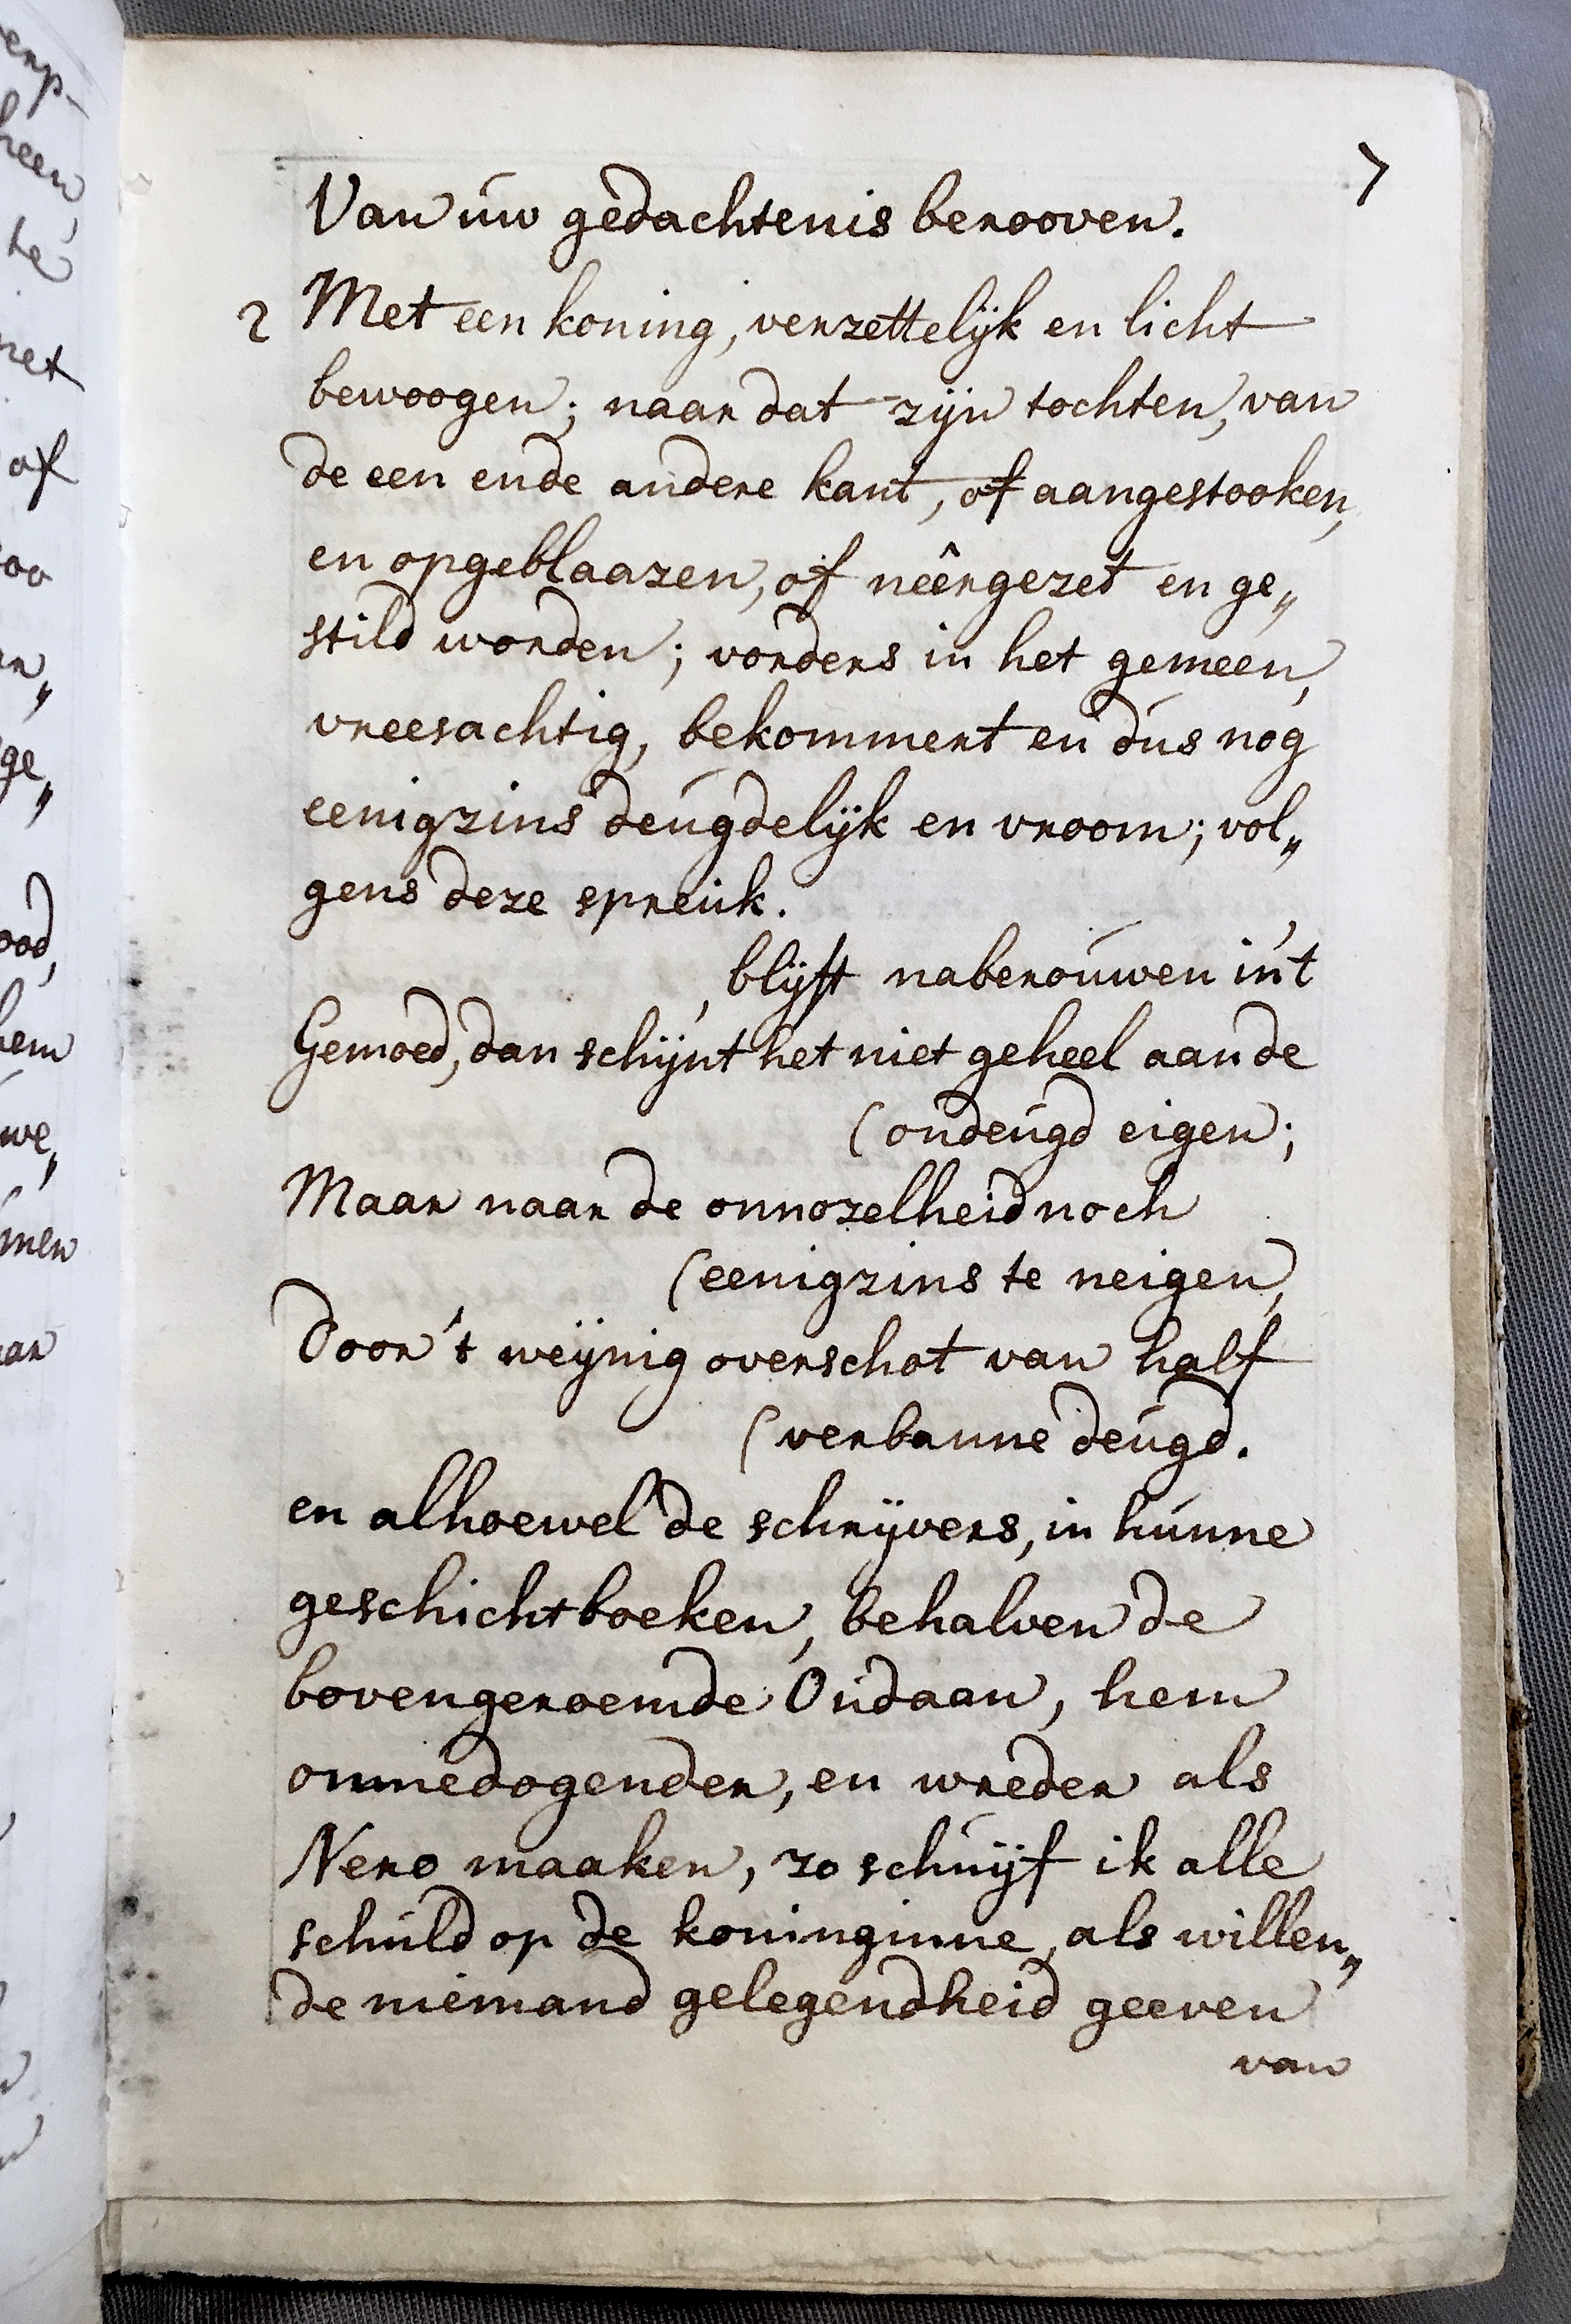 7
Van úw gedachtenis berooven.
2 Met een koning, verzettelijk en licht
bewoogen; naar dat zijn tochten, van
de een ende andere kant, of aangestooken,
en opgeblaazen, of neêrgezet en ge„
stild worden; vorders in het gemeen,
vreesachtig, bekommert en dús nog
eenigzins deúgdelijk en vroom; vol„
gens deze spreúk.
blijft naberoúwen in't
Gemoed, dan schijnt het niet geheel aan de
(ondeúgd eigen;
Maar naar de onnozelheid noch
(eenigzins te neigen,
Door 't weijnig overschot van half
(verbanne deúgd.
en alhoewel de schrijvers, in húnne
geschichtboeken, behalven de
bovengeroemde Oúdaan, hem
onmedogender, en wreder als
Nero maaken, zo schúijf ik alle
schúld op de koninginne, als willen„
de niemand gelegendheid geeven
van